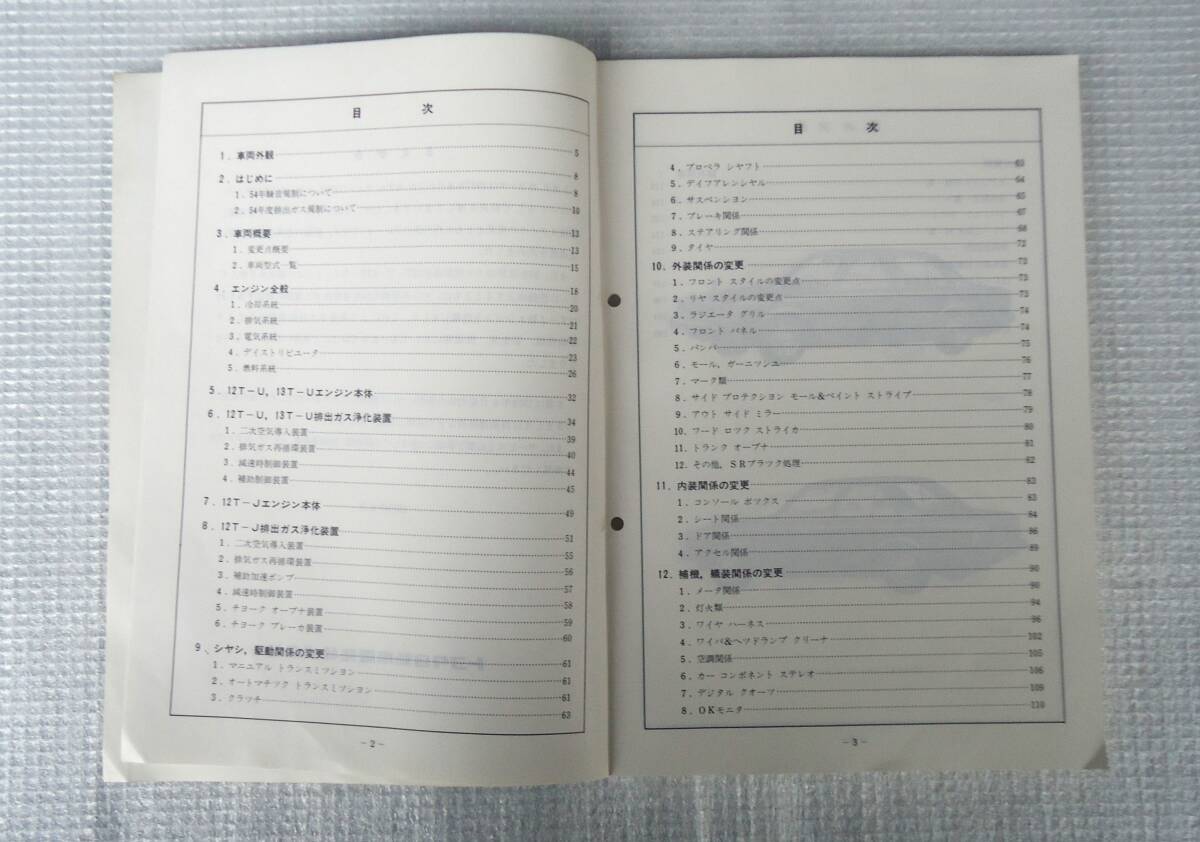 目 次
1．車両外観 5
2．はじめに 8
1．54年騒音規制について 8
2．54年度排出ガス規制について 10
3．車両概要 13
1．変更点概要 13
2．車両型式一覧 15
4．エンジン全般 18
1．冷却系統 20
2．排気系統 21
3．電気系統 22
4．デイストリビユータ 23
5．燃料系統 26
5．12T－U，13T－Uエンジン本体 32
6．12T－U，13T－U排出ガス浄化装置 34
1．二次空気導入装置 39
2．排気ガス再循環装置 40
3．減速時制御装置 44
4．補助制御装置 45
7．12T－Jエンジン本体 49
8．12T－J排出ガス浄化装置 51
1．二次空気導入装置 55
2．排気ガス再循環装置 56
3．補助加速ポンプ 57
4．減速時制御装置 58
5．チヨーク オープナ装置 59
6．チヨーク ブレーカ装置 60
9．シヤシ，駆動関係の変更 61
1．マニユアル トランスミツシヨン 61
2．オートマチツク トランスミツシヨン 61
3．クラツチ 63
－2－
目 次
4．プロペラ シヤフト 63
5．デイフアレンシヤル 64
6．サスペンシヨン 65
7．ブレーキ関係 67
8．ステアリング関係 68
9．タイヤ 72
10．外装関係の変更 73
1．フロント スタイルの変更点 73
2．リヤ スタイルの変更点 73
3．ラジエータ グリル 74
4．フロント パネル 74
5．バンパ 75
6．モール，ガーニツシユ 76
7．マーク類 77
8．サイド プロテクシヨン モール＆ペイント ストライプ 78
9．アウト サイド ミラー 79
10．フード ロツク ストライカ 80
11．トランク オープナ 81
12．その他，SRブラツク処理 82
11．内装関係の変更 83
1．コンソール ボツクス 83
2．シート関係 84
3．ドア関係 86
4．アクセル関係 89
12．補機，艤装関係の変更 90
1．メータ関係 90
2．灯火類 94
3．ワイヤ ハーネス 96
4．ワイパ＆ヘツドランプ クリーナ 102
5．空調関係 105
6．カー コンポネント ステレオ 106
7．デジタル クオーツ 109
8．OKモニタ 110
－3－